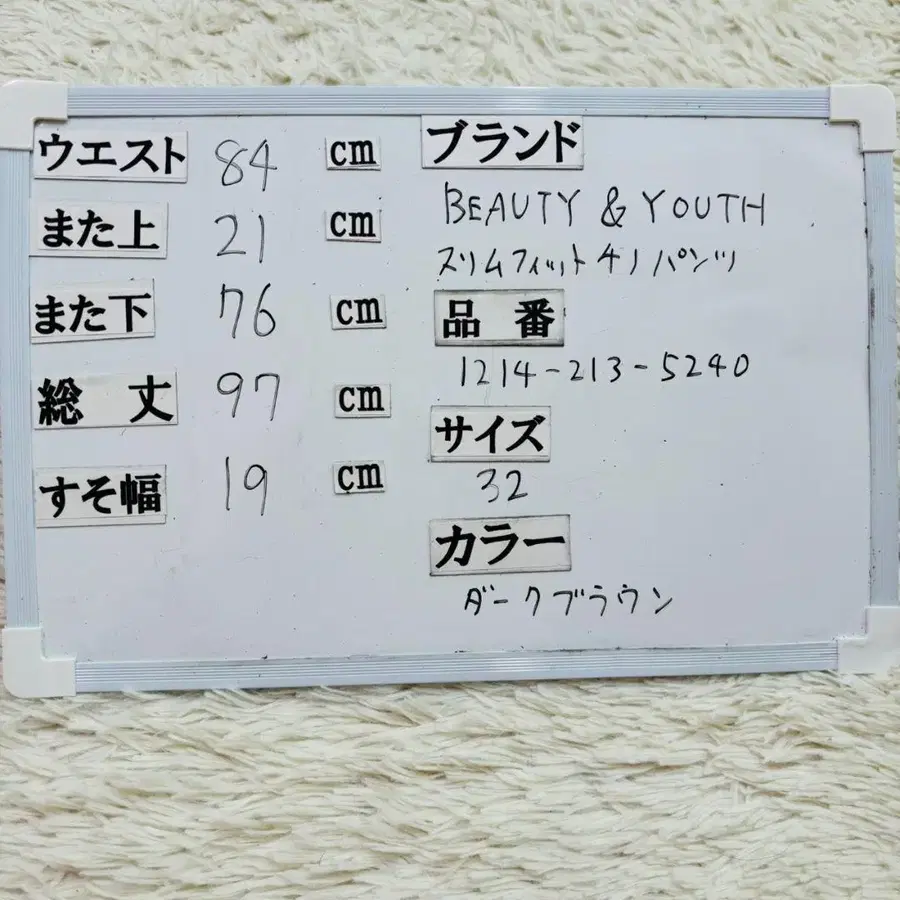 ウエスト 84 cm
また上 21 cm
また下 76 cm
総丈 97 cm
すそ幅 19 cm
ブランド
BEAUTY & YOUTH
スリムフィットチノパンツ
品番
1214-213-5240
サイズ
32
カラー
ダークブラウン